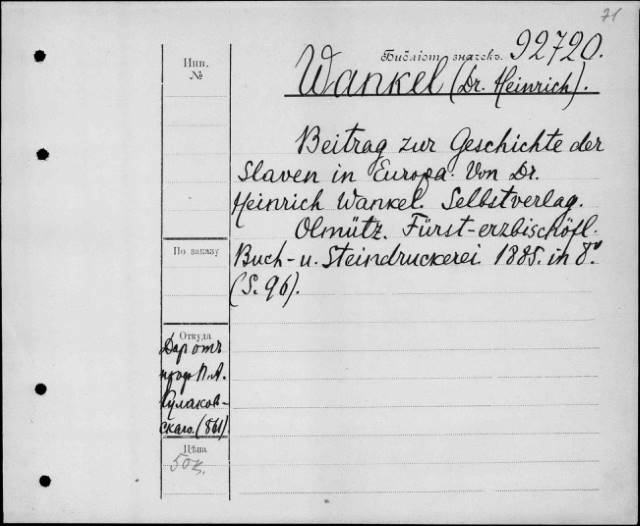 71
Библіот. значекъ. 92720.
Инв.
№
Wankel (Dr. Heinrich).
Beitrag zur Geschichte der
Slaven in Europa. Von Dr.
Heinrich Wankel. Selbstverlag.
Olmütz. Fürst-erzbischöfl.
Buch- u. Steindruckerei 1885. in 8°
(S. 96).
По заказу
Откуда
Даръ отъ
проф. П. А.
Кулаков-
скаго. (861)
Цѣна
50к.